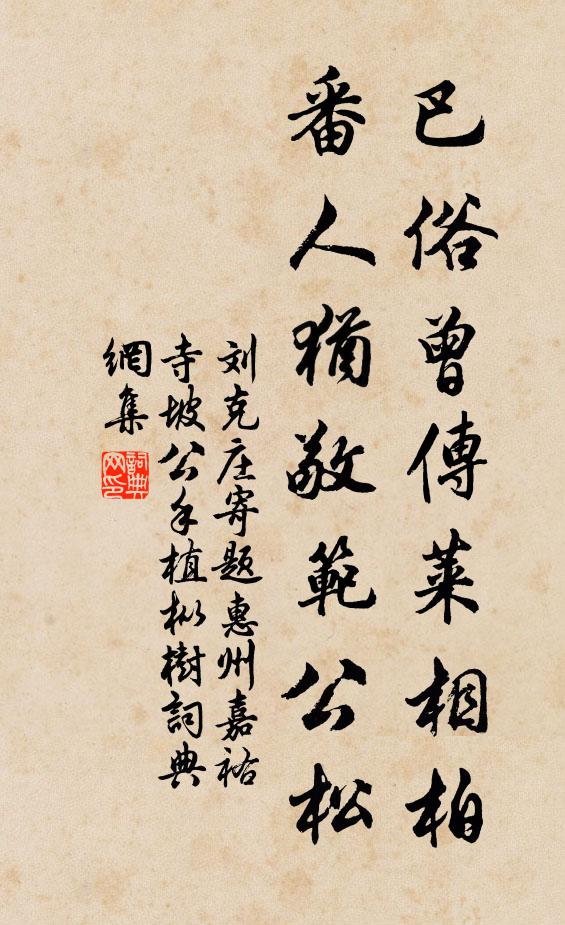 巴俗曾傳萊相柏
番人猶敬範公松
刘克庄寄题惠州嘉祐
寺坡公手植樅樹詞典
網集
詞典網印